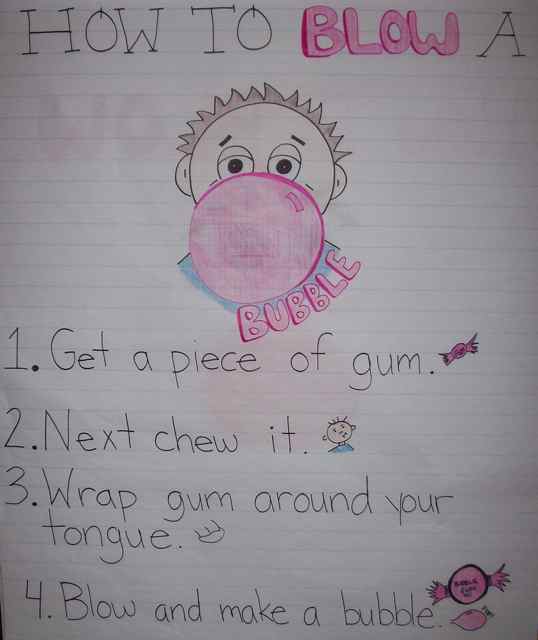 HOW TO BLOW A
BUBBLE
1. Get a piece of gum.
2. Next chew it.
3. Wrap gum around your
tongue.
4. Blow and make a bubble.
BUBBLE
GUM